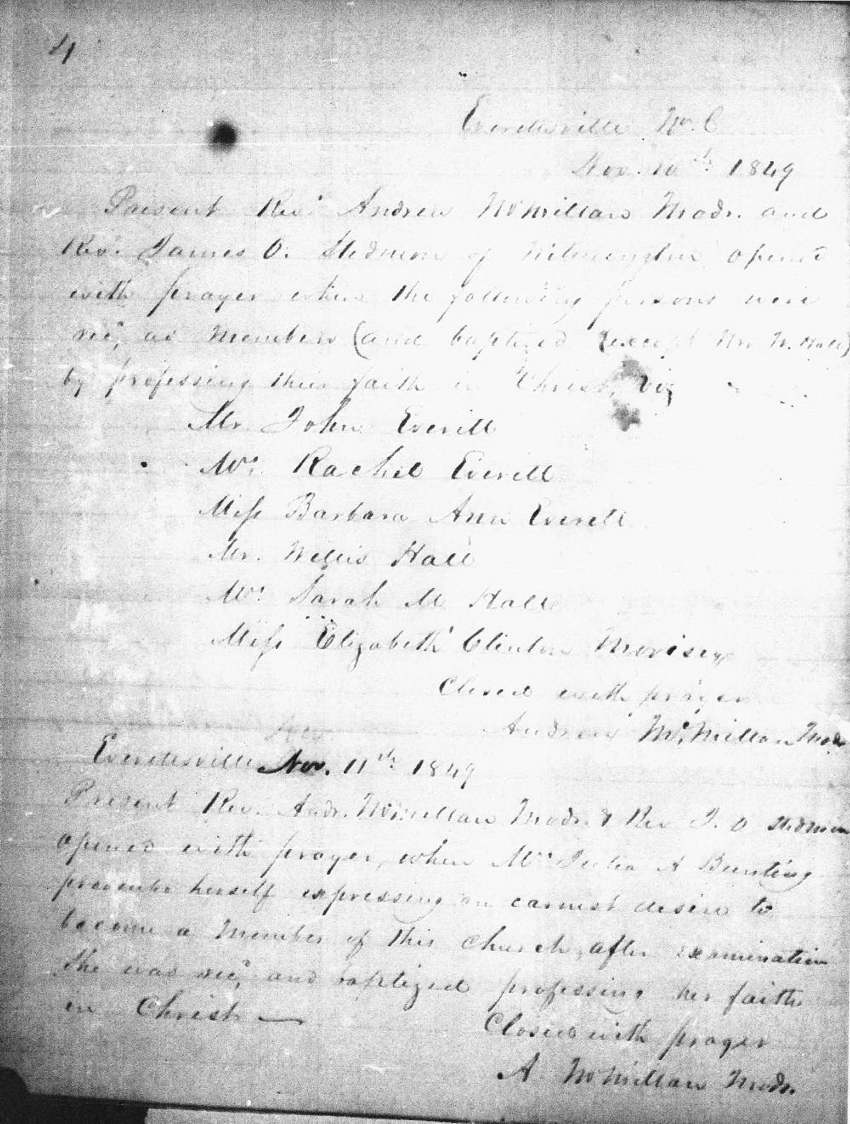 4
Everettsville N. C
Nov. 10th 1849
Present Revd Andrew McMillan Modr. and
Rev. James O. Stedman of Wilmington opened
with prayer when the following persons were
recd as members (and baptized except Mr W. Hall)
by professing their faith in Christ, viz
Mr. John Everett
Mrs. Rachel Everett
Miss Barbara Ann Everett
Mr. Willis Hall
Mrs Sarah M Hall
Miss Elizabeth Clinton Morisey
Closed with prayer
Andrew McMillan Modr
Everettsville Nov. 11th 1849
Present Rev. Andr. McMillan Modr & Rev J. O Stedman
opened with prayer, when Mrs Julia A Bunting
presented herself expressing an earnest desire to
become a member of this church, after examination
She was recd, and baptized professing her faith
in Christ —
Closed with prayer
A. McMillan Modr.